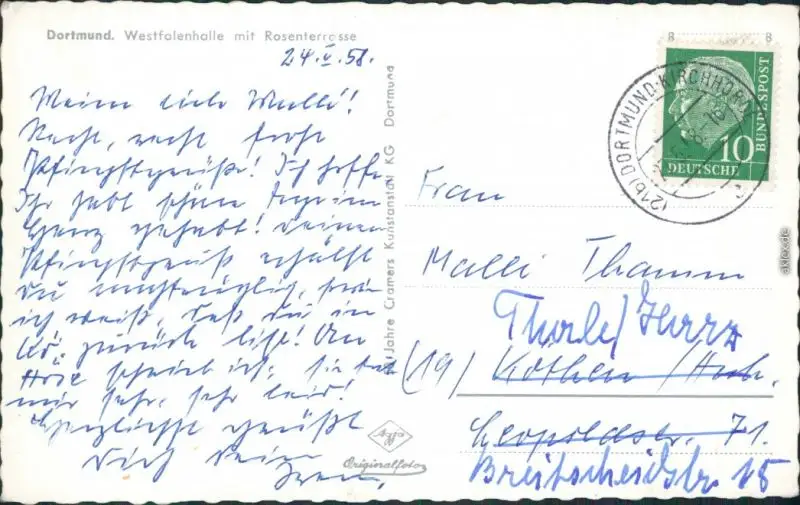 Dortmund. Westfalenhalle mit Rosenterrasse
24.V.58.
Meine liebe Malli!
Recht, recht frohe
Pfingstgrüße! Ich hoffe
Ihr habt schöne Tage im
Harz gehabt! Deinen
Pfingstgruß erhälst
Du nachträglich, da
ich weiß, daß Du in
Kö. zurück bist!
schreib ich, sie tut
mir sehr, sehr leid!
Herzlichst grüßt
Dich Deine
Jahre Cramers Kunstanstalt KG Dortmund
Agfa
Originalfoto
8 8
(21b) DORTMUND-KIRCHHÖRDE
10
DEUTSCHE
BUNDESPOST
Frau
Malli Thamm
Thale/Harz
(19) Köthen /Anh.
Leopoldstr. 71.
Breitscheidstr 15
aklex.de